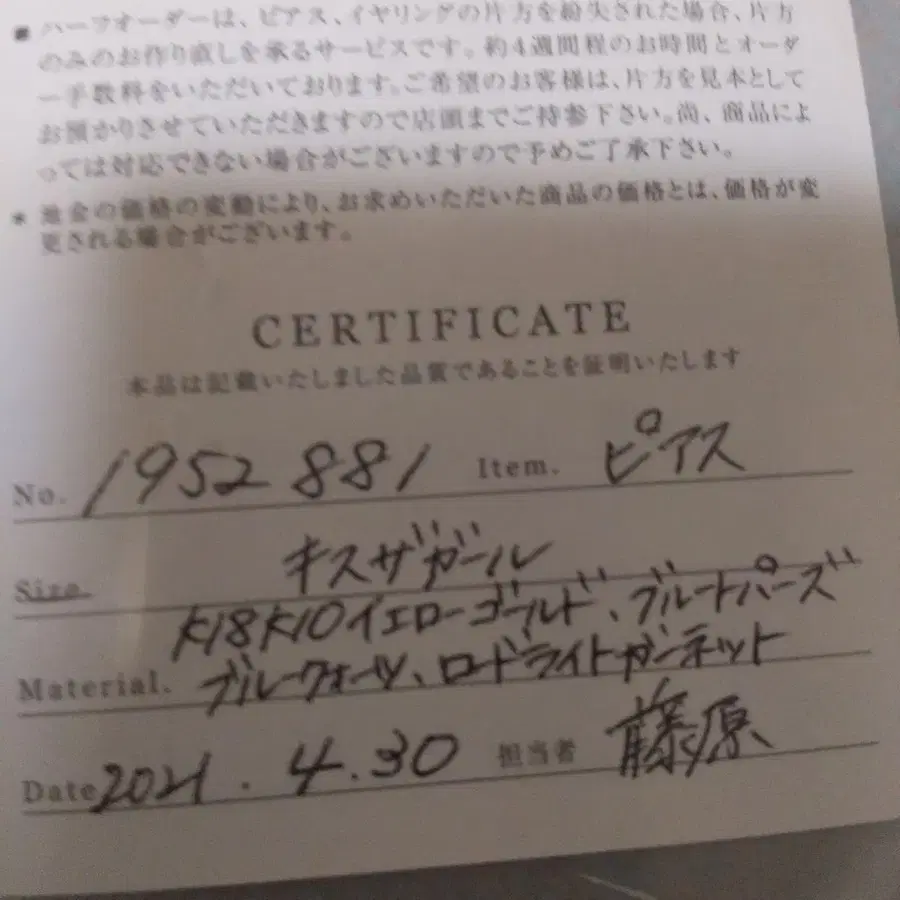 ■ ハーフオーダーは、ピアス、イヤリングの片方を紛失された場合、片方
のみのお作り直しを承るサービスです。約4週間程のお時間とオーダ
ー手数料をいただいております。ご希望のお客様は、片方を見本として
お預かりさせていただきますので店頭までご持参下さい。尚、商品によ
っては対応できない場合がございますので予めご了承下さい。
* 地金の価格の変動により、お求めいただいた商品の価格とは、価格が変
更される場合がございます。
CERTIFICATE
本品は記載いたしました品質であることを証明いたします
No. 1952881 Item. ピアス
Size. キスザガール
K18K10イエローゴールド、ブルートパーズ
Material. ブルークォーツ、ロードライトガーネット
Date 2021.4.30 担当者 藤原